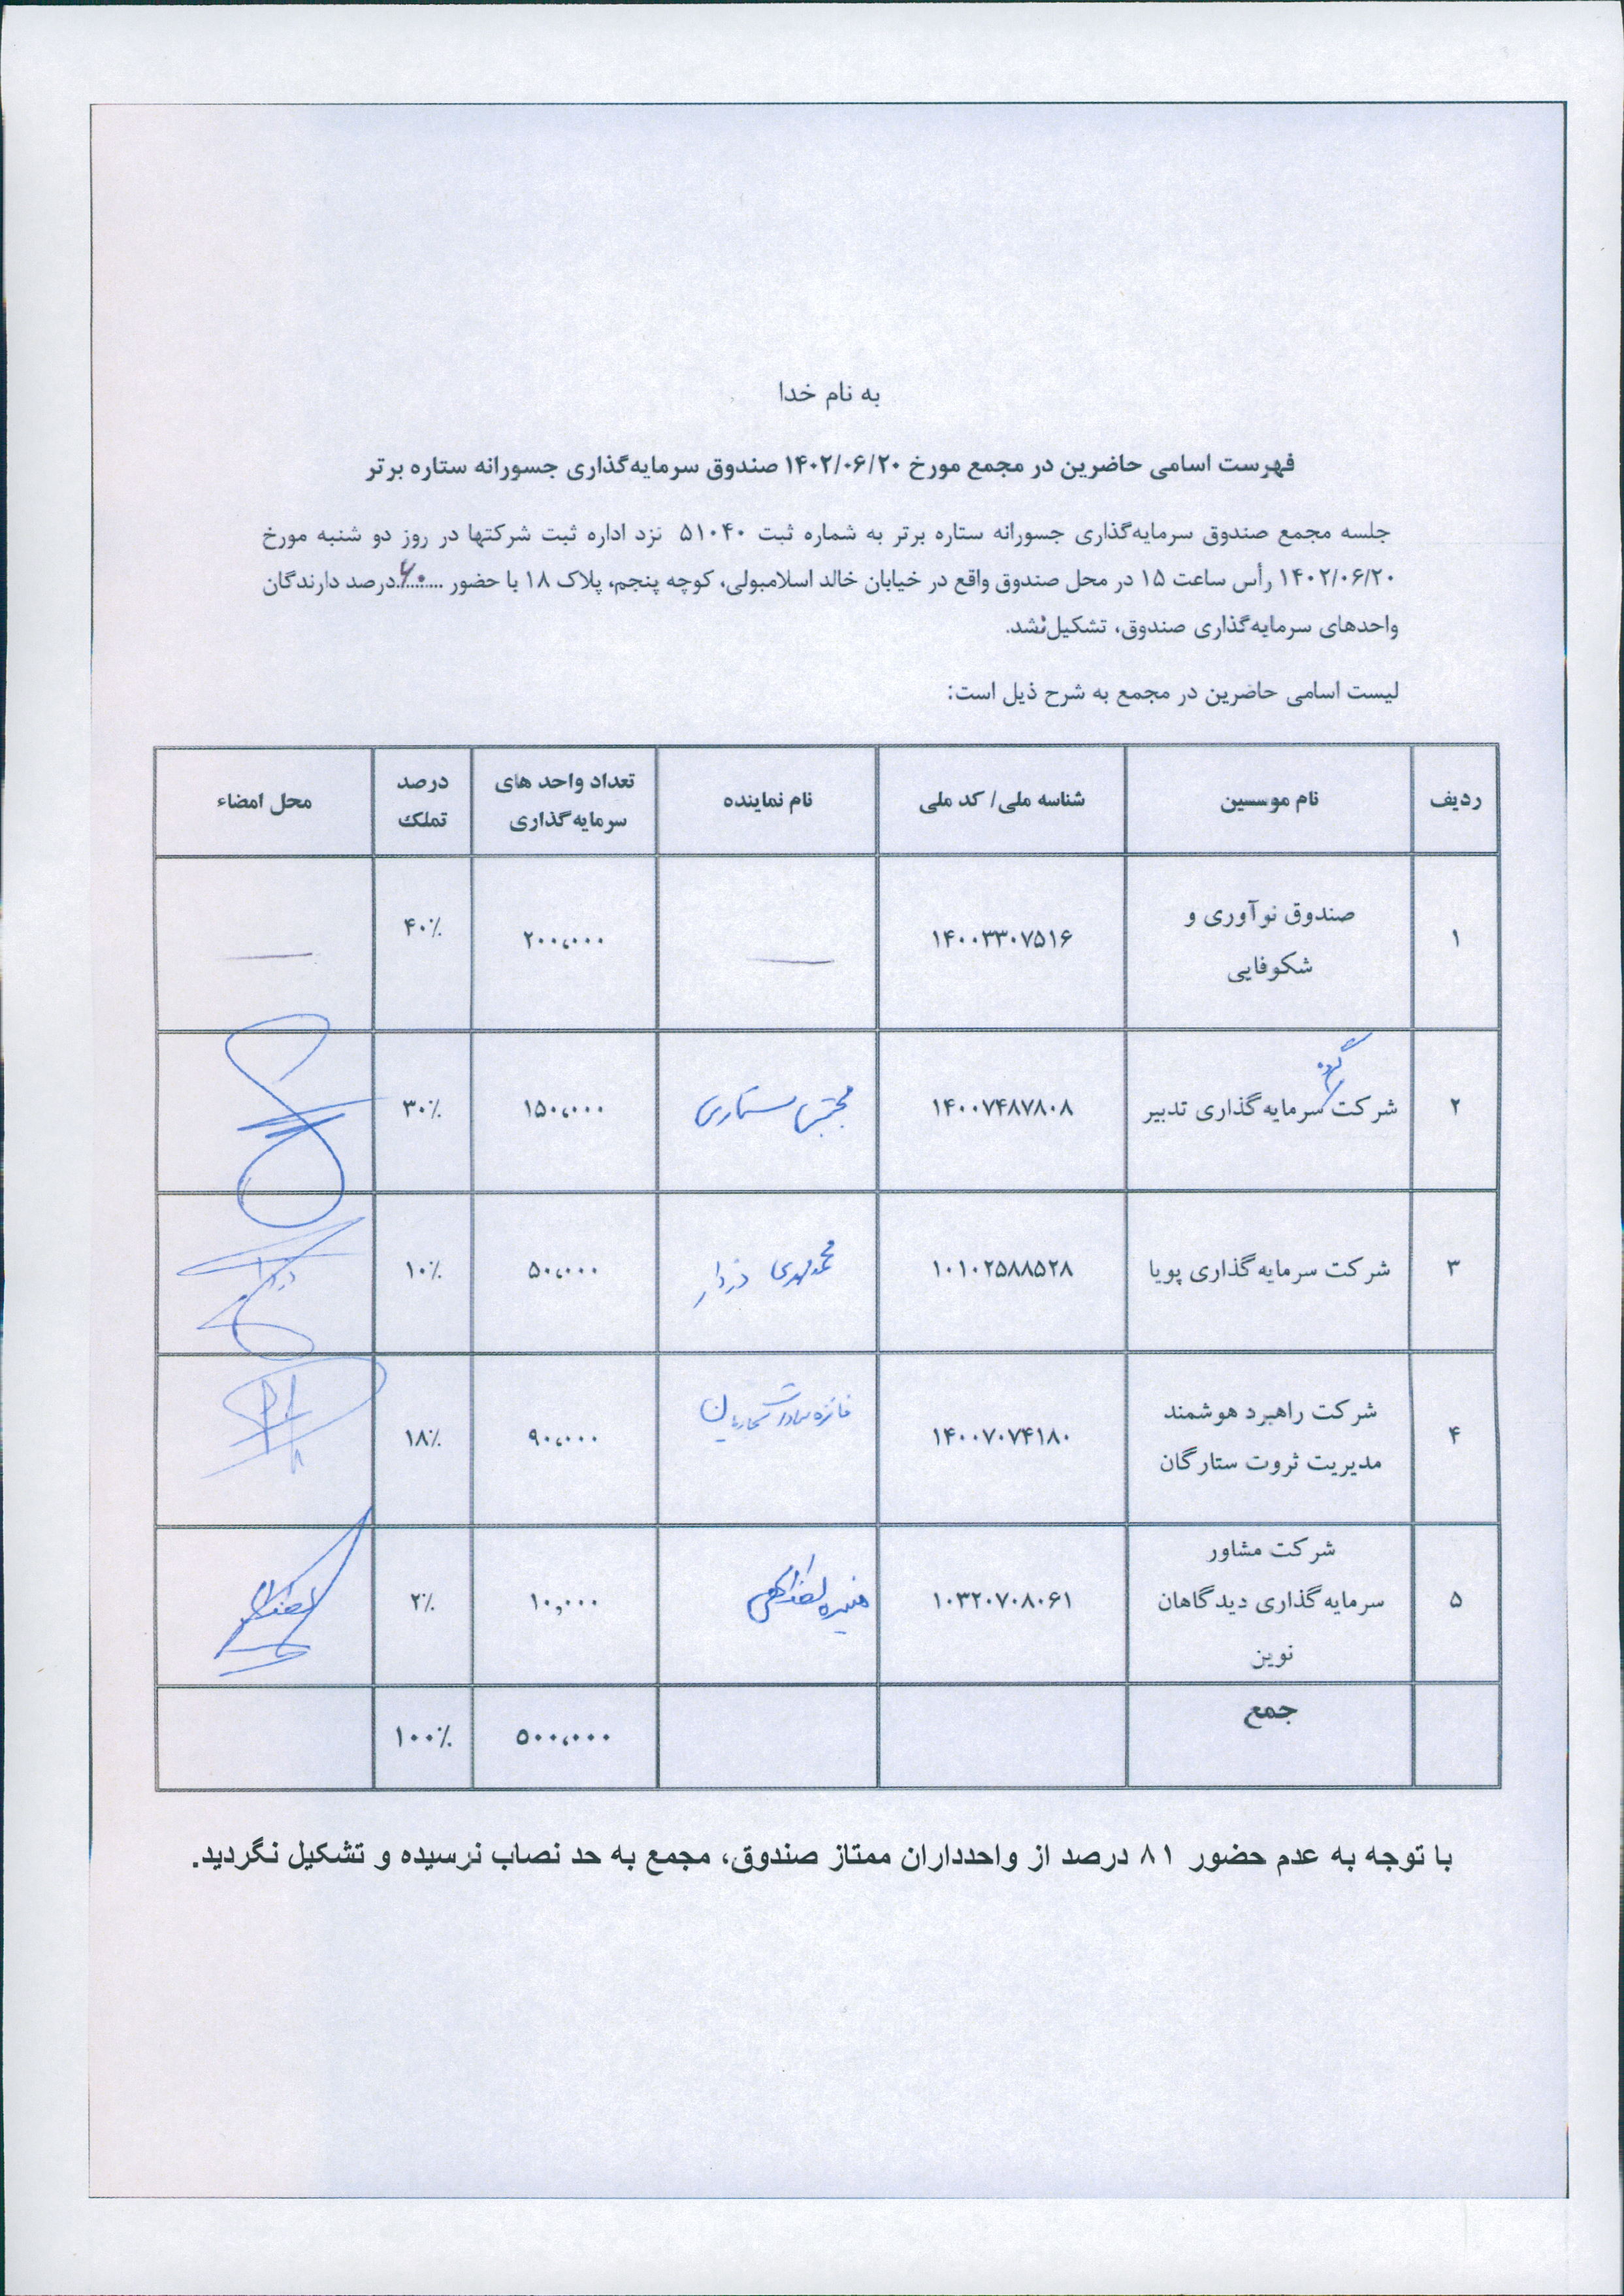 به نام خدا
فهرست اسامی حاضرین در مجمع مورخ ۱۴۰۲/۰۶/۲۰ صندوق سرمایه‌گذاری جسورانه ستاره برتر
جلسه مجمع صندوق سرمایه‌گذاری جسورانه ستاره برتر به شماره ثبت ۵۱۰۴۰ نزد اداره ثبت شرکتها در روز دو شنبه مورخ
۱۴۰۲/۰۶/۲۰ رأس ساعت ۱۵ در محل صندوق واقع در خیابان خالد اسلامبولی، کوچه پنجم، پلاک ۱۸ با حضور ...۶۰...درصد دارندگان
واحدهای سرمایه‌گذاری صندوق، تشکیل نشد.
لیست اسامی حاضرین در مجمع به شرح ذیل است:
ردیف نام موسسین شناسه ملی/ کد ملی نام نماینده تعداد واحد های سرمایه‌گذاری درصد تملک محل امضاء
۱ صندوق نوآوری و شکوفایی ۱۴۰۰۳۳۰۷۵۱۶ ۲۰۰،۰۰۰ ۴۰٪
۲ شرکت گروه سرمایه‌گذاری تدبیر ۱۴۰۰۷۴۸۷۸۰۸ مجتبی ستاری ۱۵۰،۰۰۰ ۳۰٪
۳ شرکت سرمایه‌گذاری پویا ۱۰۱۰۲۵۸۸۵۲۸ محمدمهدی ۵۰،۰۰۰ ۱۰٪
۴ شرکت راهبرد هوشمند مدیریت ثروت ستارگان ۱۴۰۰۷۰۷۴۱۸۰ فائزه سادات ۹۰،۰۰۰ ۱۸٪
۵ شرکت مشاور سرمایه‌گذاری دیدگاهان نوین ۱۰۳۲۰۷۰۸۰۶۱ منیره لطف‌الهی ۱۰,۰۰۰ ۲٪
جمع ۵۰۰،۰۰۰ ۱۰۰٪
با توجه به عدم حضور ۸۱ درصد از واحدداران ممتاز صندوق، مجمع به حد نصاب نرسیده و تشکیل نگردید.